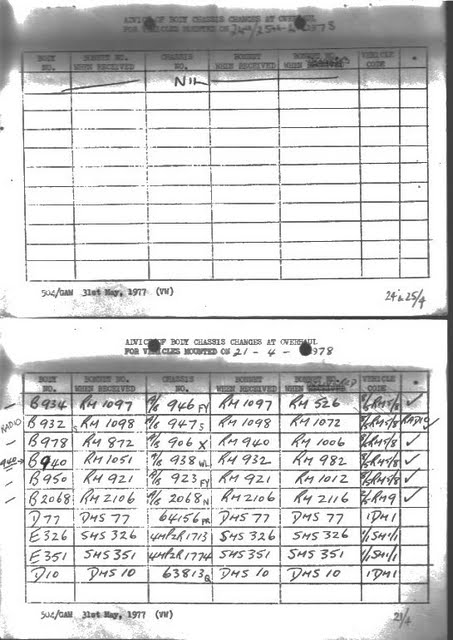 ADVICE OF BODY CHASSIS CHANGES AT OVERHAUL
FOR VEHICLES MOUNTED ON 24th/25th 1978
BODY NO. BONNET NO. WHEN RECEIVED CHASSIS NO. BONNET WHEN RECEIVED BONNET WHEN VEHICLE CODE *
NIL
502/GAW 31st May, 1977 (VW)
24 & 25/4
ADVICE OF BODY CHASSIS CHANGES AT OVERHAUL
FOR VEHICLES MOUNTED ON 21 - 4 - 1978
BODY NO. BONNET NO. WHEN RECEIVED CHASSIS NO. BONNET WHEN RECEIVED BONNET NO. WHEN VEHICLE CODE *
B934 RM 1097 946 FY RM 1097 RM 526 5/8 ✓
RADIO B932 RM 1098 947 S RM 1098 RM 1072 5/8 RADIO ✓
B978 RM 872 906 X RM 940 RM 1006 5/8 ✓
940 → B940 RM 1051 938 WL RM 932 RM 982 5/8 ✓
B950 RM 921 923 FY RM 921 RM 1012 5/8 ✓
B2068 RM 2106 2068 N RM 2106 RM 2116 RM9 ✓
D77 DMS 77 64156 PR DMS 77 DMS 77 1DM1
E326 SMS 326 4MP2R1713 SMS 326 SMS 326 1/1SM1/1
E351 SMS 351 4MP2R1774 SMS 351 SMS 351 1/1SM1/1
D10 DMS 10 63813 Q DMS 10 DMS 10 1DM1
502/GAW 31st May, 1977 (VW)
21/4